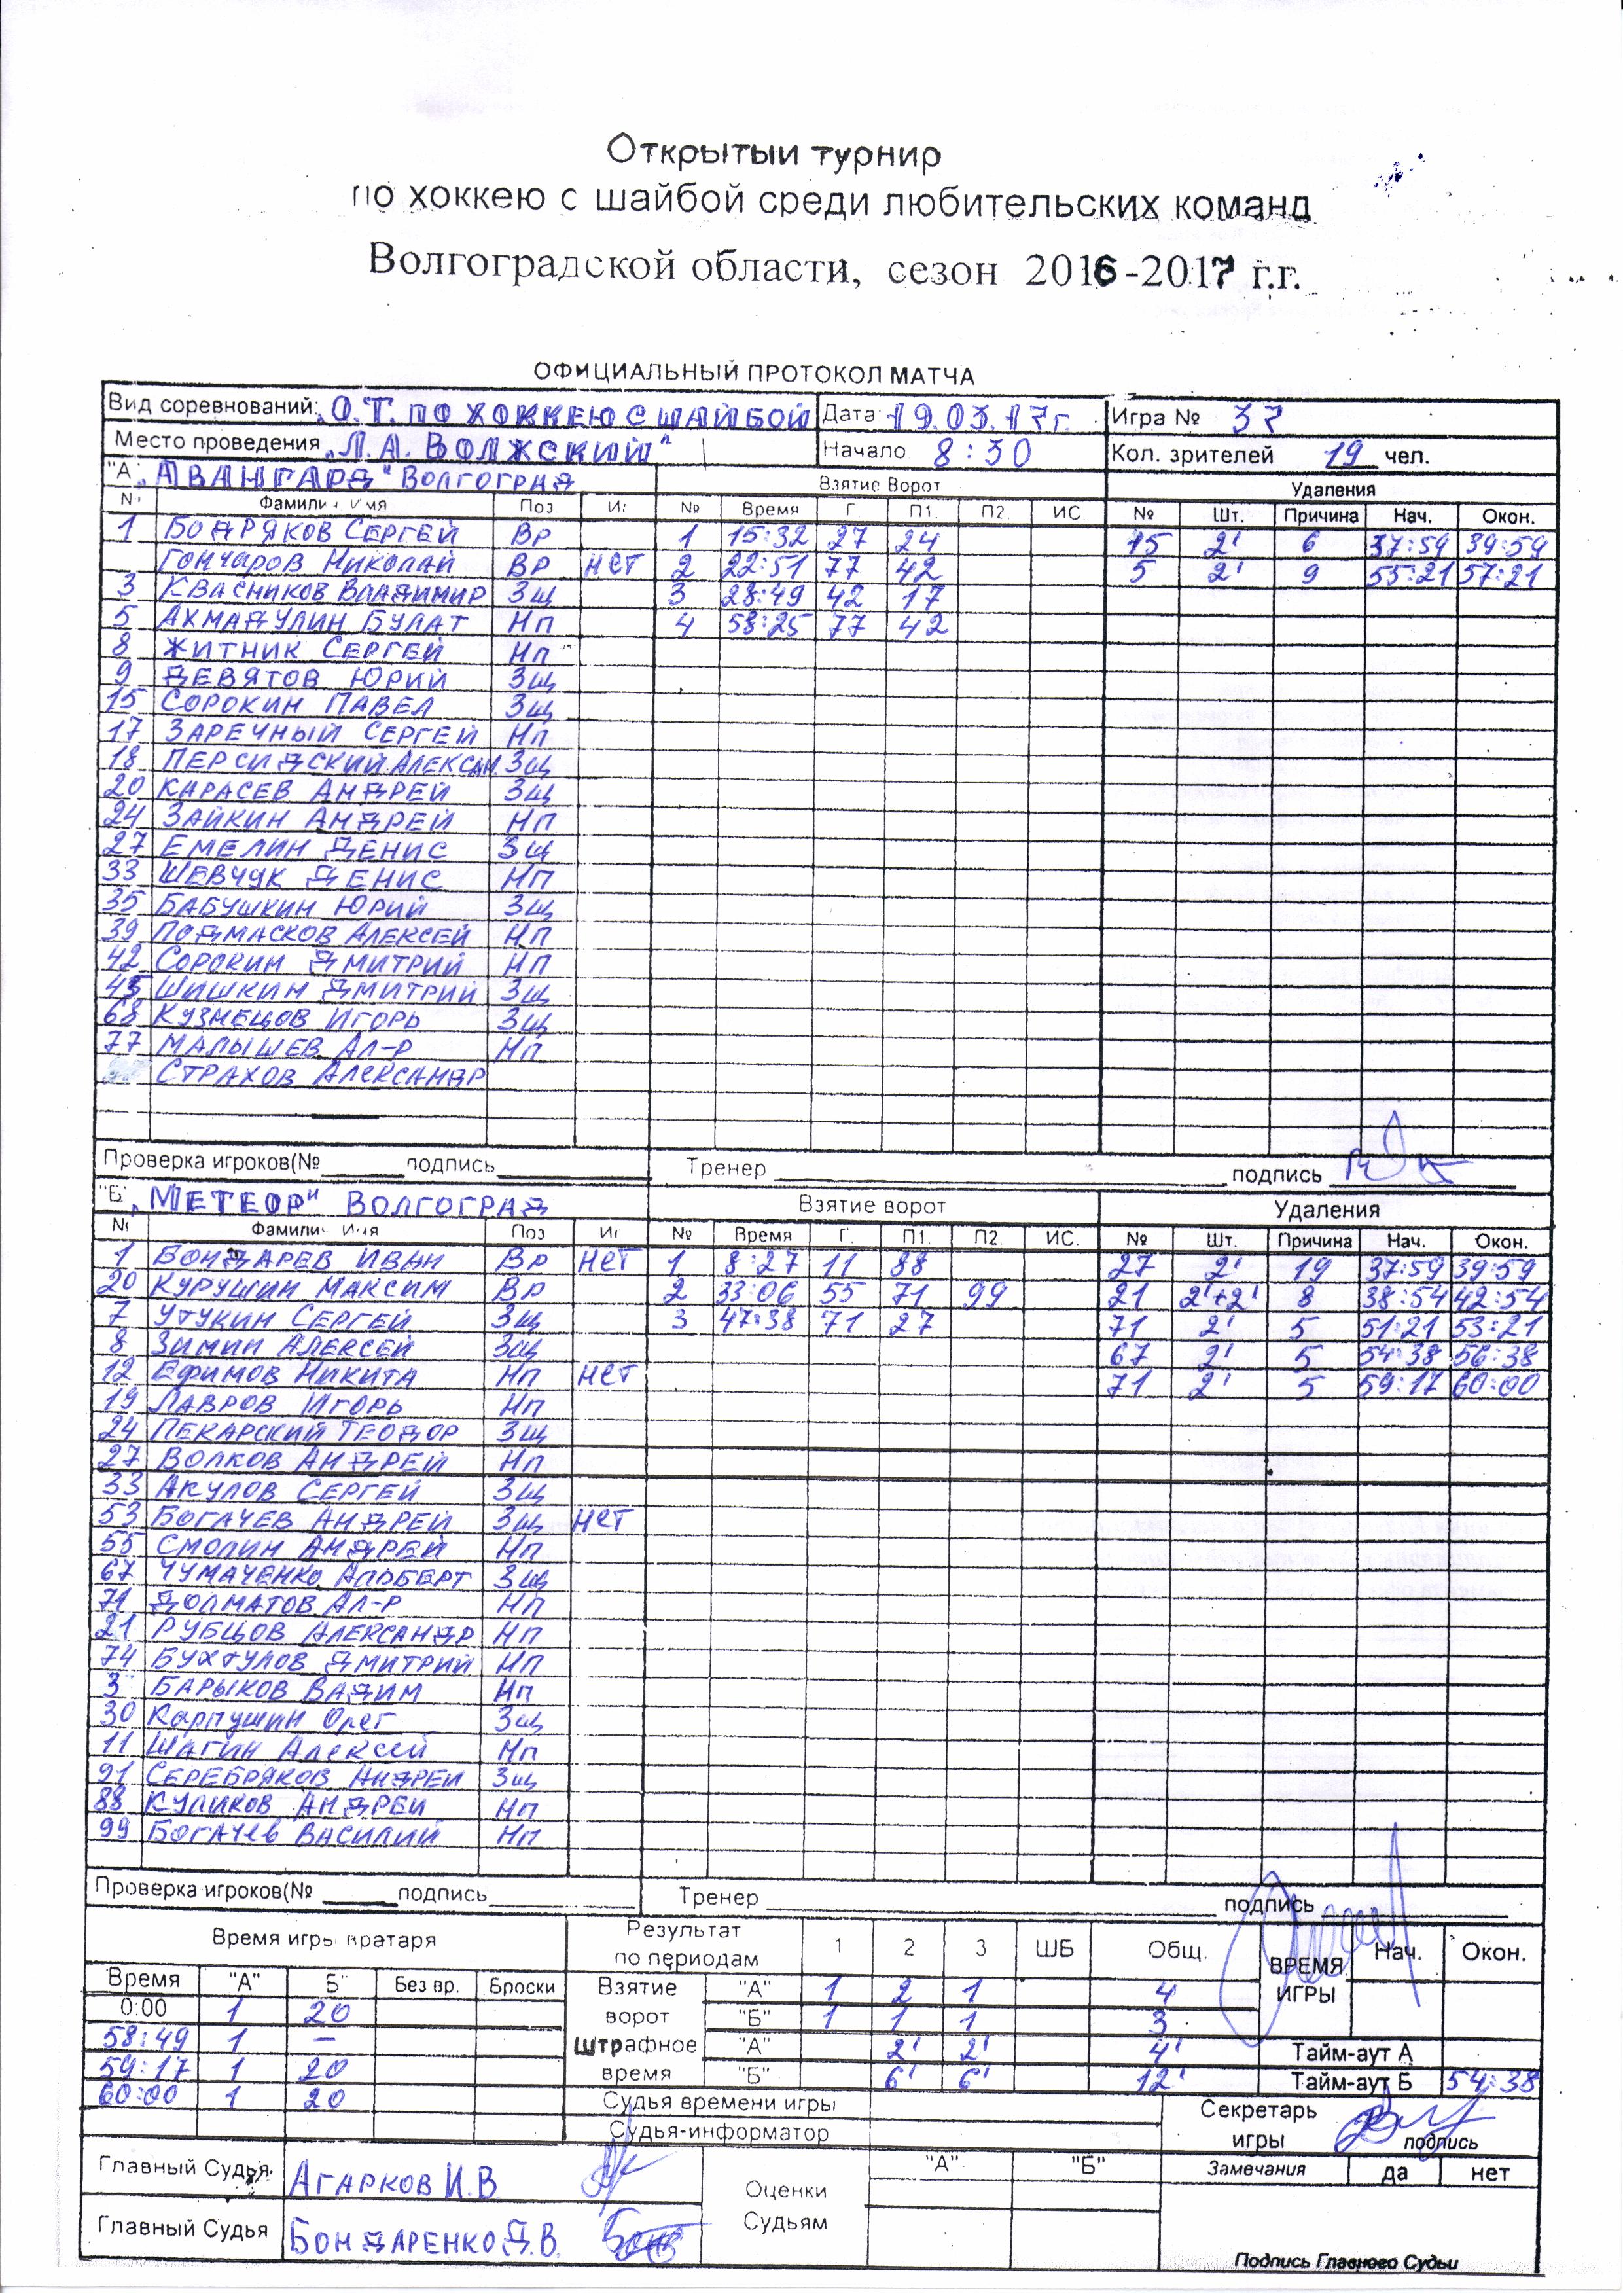 Открытый турнир
по хоккею с шайбой среди любительских команд
Волгоградской области, сезон 2016-2017 г.г.
ОФИЦИАЛЬНЫЙ ПРОТОКОЛ МАТЧА
Вид соревнований: „О.Т. ПО ХОККЕЮ С ШАЙБОЙ Дата: 19.03.17г. Игра № 37
Место проведения „Л.А. ВОЛЖСКИЙ" Начало 8:30 Кол. зрителей 19 чел.
"А" „АВАНГАРД" ВОЛГОГРАД Взятие Ворот Удаления
№ Фамилия Имя Поз И: № Время Г. П1. П2. ИС. № Шт. Причина Нач. Окон.
1 БОДРЯКОВ СЕРГЕЙ Вр 1 15:32 27 24 15 2' 6 37:59 39:59
ГОНЧАРОВ НИКОЛАЙ Вр НЕТ 2 22:51 77 42 5 2' 9 55:21 57:21
3 КВАСНИКОВ ВЛАДИМИР Зщ 3 28:49 42 17
5 АХМАДУЛИН БУЛАТ Нп 4 58:25 77 42
8 ЖИТНИК СЕРГЕЙ Нп
9 ДЕВЯТОВ ЮРИЙ Зщ
15 СОРОКИН ПАВЕЛ Зщ
17 ЗАРЕЧНЫЙ СЕРГЕЙ Нп
18 ПЕРСИДСКИЙ АЛЕКСАН. Зщ
20 КАРАСЕВ АНДРЕЙ Зщ
24 ЗАЙКИН АНДРЕЙ Нп
27 ЕМЕЛИН ДЕНИС Зщ
33 ШЕВЧУК ДЕНИС Нп
35 БАБУШКИН ЮРИЙ Зщ
39 ПОДМАСКОВ АЛЕКСЕЙ Нп
42 СОРОКИН ДМИТРИЙ Нп
45 ШИШКИН ДМИТРИЙ Зщ
68 КУЗНЕЦОВ ИГОРЬ Зщ
77 МАЛЫШЕВ АЛ-Р Нп
СТРАХОВ АЛЕКСАНДР
Проверка игроков(№ подпись Тренер подпись
"Б" „МЕТЕОР" ВОЛГОГРАД Взятие ворот Удаления
№ Фамилия Имя Поз И: № Время Г. П1. П2. ИС. № Шт. Причина Нач. Окон.
1 БОНДАРЕВ ИВАН Вр НЕТ 1 8:27 11 88 27 2' 19 37:59 39:59
20 КУРУШИН МАКСИМ Вр 2 33:06 55 71 99 21 2'+2' 8 38:54 42:54
7 УТУКИН СЕРГЕЙ Зщ 3 47:38 71 27 71 2' 5 51:21 53:21
8 ЗИМИН АЛЕКСЕЙ Зщ 67 2' 5 54:38 56:38
12 ЕФИМОВ НИКИТА Нп НЕТ 71 2' 5 59:17 60:00
19 ЛАВРОВ ИГОРЬ Нп
24 ПЕКАРСКИЙ ТЕОДОР Зщ
27 ВОЛКОВ АНДРЕЙ Нп
33 АКУЛОВ СЕРГЕЙ Зщ
53 БОГАЧЕВ АНДРЕЙ Зщ НЕТ
55 СМОЛИН АНДРЕЙ Нп
67 ЧУМАЧЕНКО АЛЬБЕРТ Зщ
71 ДОЛМАТОВ АЛ-Р Нп
21 РУБЦОВ АЛЕКСАНДР Нп
74 БУХТУЛОВ ДМИТРИЙ Нп
3 БАРЫКОВ ВАДИМ Нп
30 Карпушин Олег Зщ
11 ШАГИН АЛЕКСЕЙ Нп
91 СЕРЕБРЯКОВ АНДРЕЙ Зщ
88 КУЛИКОВ АНДРЕЙ Нп
99 БОГАЧЕВ ВАСИЛИЙ Нп
Проверка игроков(№ подпись Тренер подпись
Время игры вратаря Результат по периодам 1 2 3 ШБ Общ. ВРЕМЯ ИГРЫ Нач. Окон.
Время "А" Б" Без вр. Броски Взятие ворот "А" 1 2 1 4
0:00 1 20 "Б" 1 1 1 3
58:49 1 — Штрафное время "А" 2' 2' 4' Тайм-аут А
59:17 1 20 "Б" 6' 6' 12' Тайм-аут Б 54:38
60:00 1 20 Судья времени игры Секретарь игры подпись
Судья-информатор
Главный Судья АГАРКОВ И.В. Оценки Судьям "А" "Б" Замечания да нет
Главный Судья БОНДАРЕНКО Д.В.
Подпись Главного Судьи